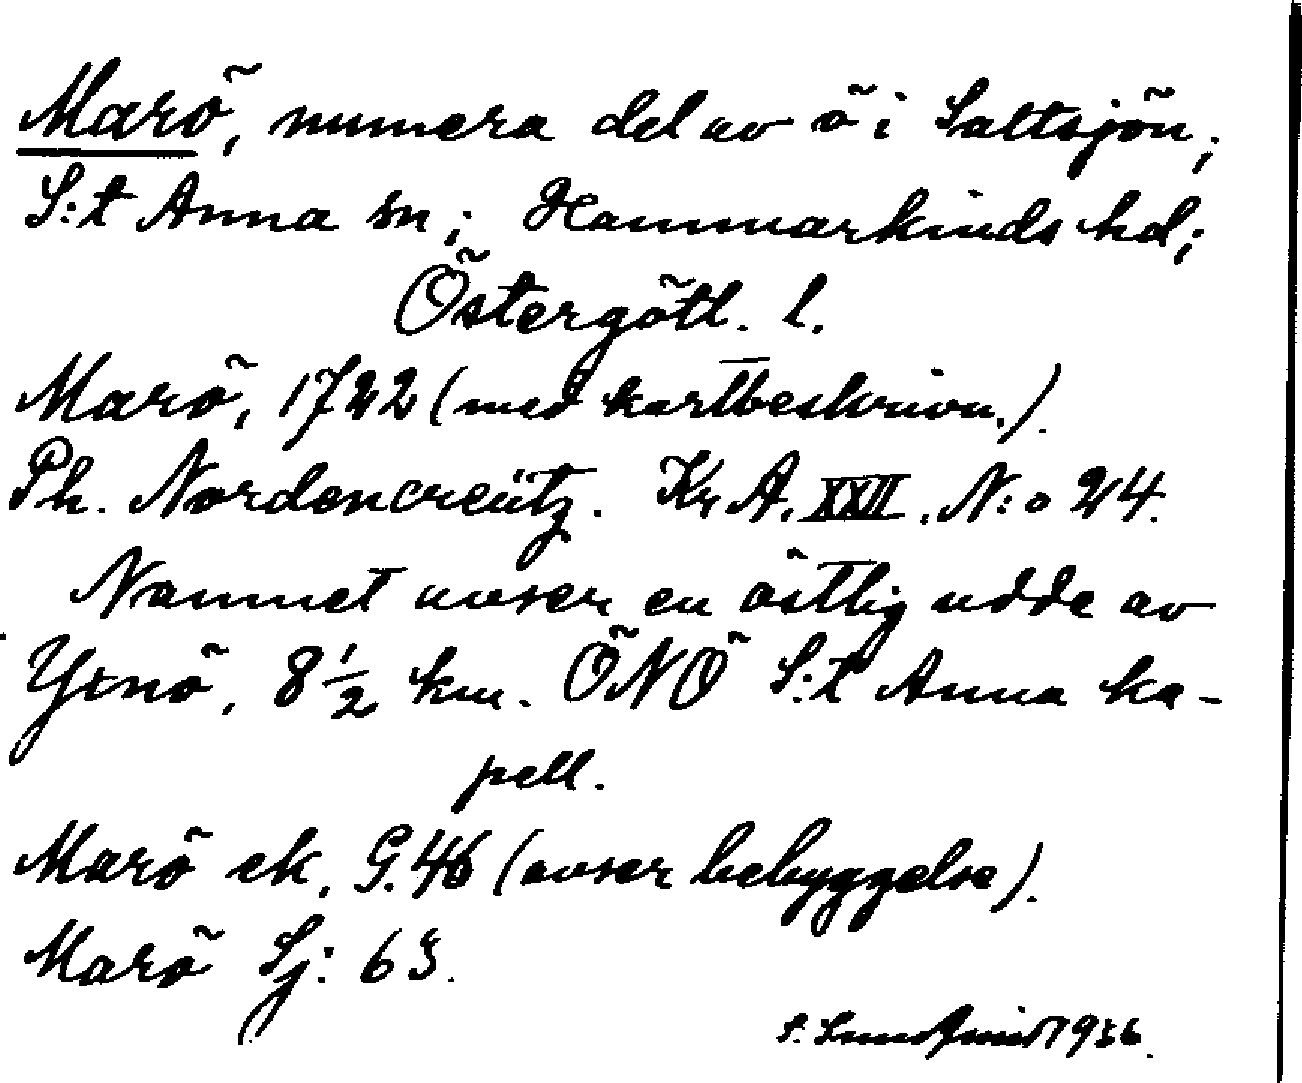 Marö, numera del av ö i Saltsjön;
S:t Anna sn; Hammarkinds hd;
Östergötl. l.
Marö, 1722 (med kartbeskrivn.).
Ph. Nordencreütz. Kr A. XXII. N:o 24.
Namnet avser en östlig udde av
Yxnö, 8 1/2 km. ÖNÖ S:t Anna ka-
pell.
Marö ek. G. 46 (avser bebyggelse).
Marö Sj: 63.
S. 1936.